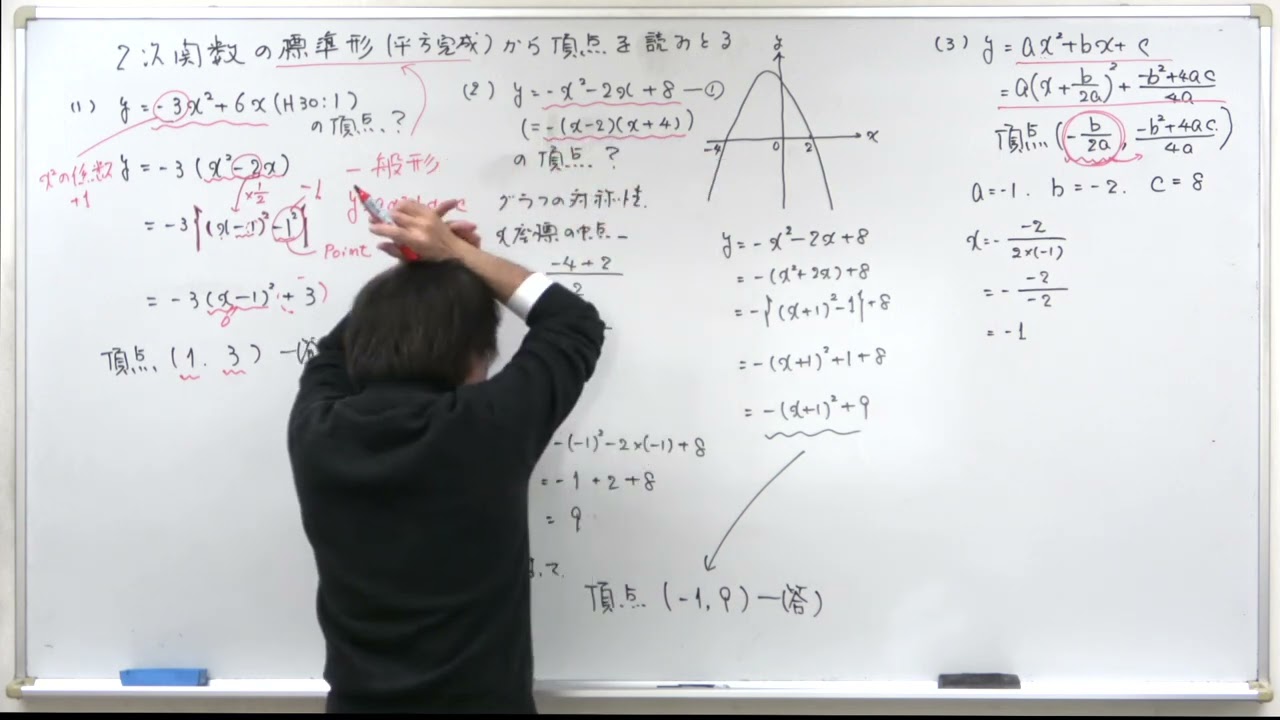 2次関数の標準形(平方完成)から頂点を読みとる
(1) y = -3x²+6x (H30:1)
の頂点?
x²の係数
+1
y = -3(x²-2x)
×1/2
-1
= -3{(x-1)²-1²}
Point
= -3(x-1)²+3
0
頂点(1, 3)
一般形
y
(2) y = -x²-2x+8 —①
(= -(x-2)(x+4))
の頂点?
グラフの対称性
x座標の中点
-4+2
2
-(-1)²-2×(-1)+8
= -1+2+8
= 9
y
x
-4
0
2
y = -x²-2x+8
= -(x²+2x)+8
= -{(x+1)²-1}+8
= -(x+1)²+1+8
= -(x+1)²+9
頂点(-1, 9) —(答)
(3) y = ax²+bx+c
= a(x+b/2a)²+(-b²+4ac)/4a
頂点(-b/2a, (-b²+4ac)/4a)
a=-1. b=-2. c=8
x = - -2/(2×(-1))
= - -2/-2
= -1